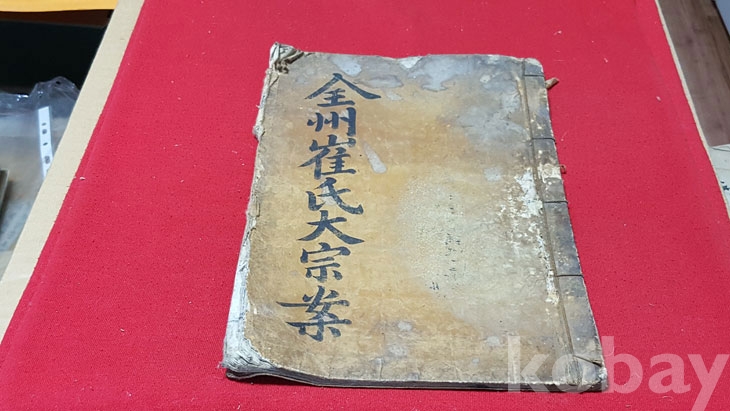 全州崔氏大宗案
kobay